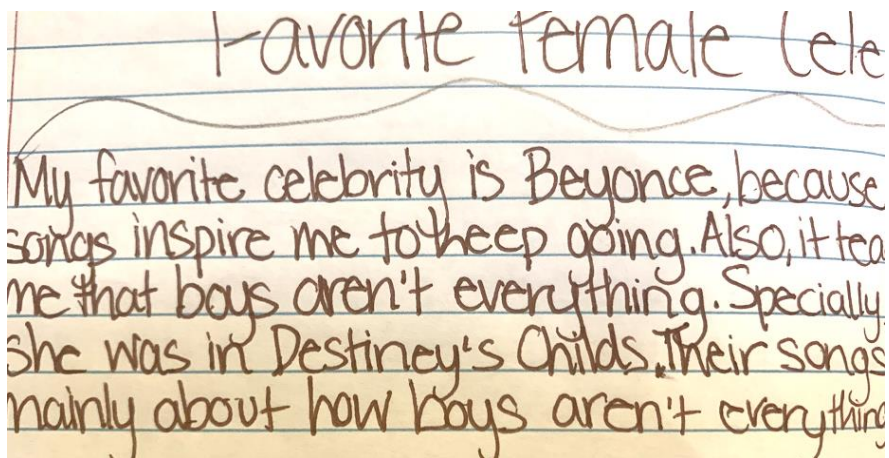 Favorite Female Cele
My favorite celebrity is Beyonce, because
songs inspire me to keep going. Also, it tea
me that boys aren't everything. Specially
she was in Destiney's Childs. Their songs
mainly about how boys aren't everything